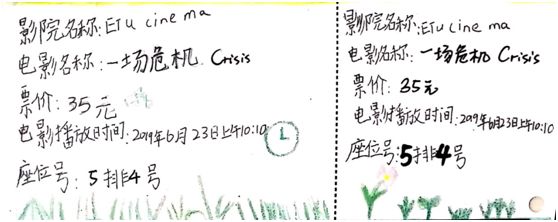 影院名称:ETU cinema
电影名称:一场危机 Crisis
票价:35元
电影播放时间:2019年6月23日上午10:10
座位号:5排4号
影院名称:ETU cinema
电影名称:一场危机 Crisis
票价:35元
电影播放时间:2019年6月23日上午10:10
座位号:5排4号